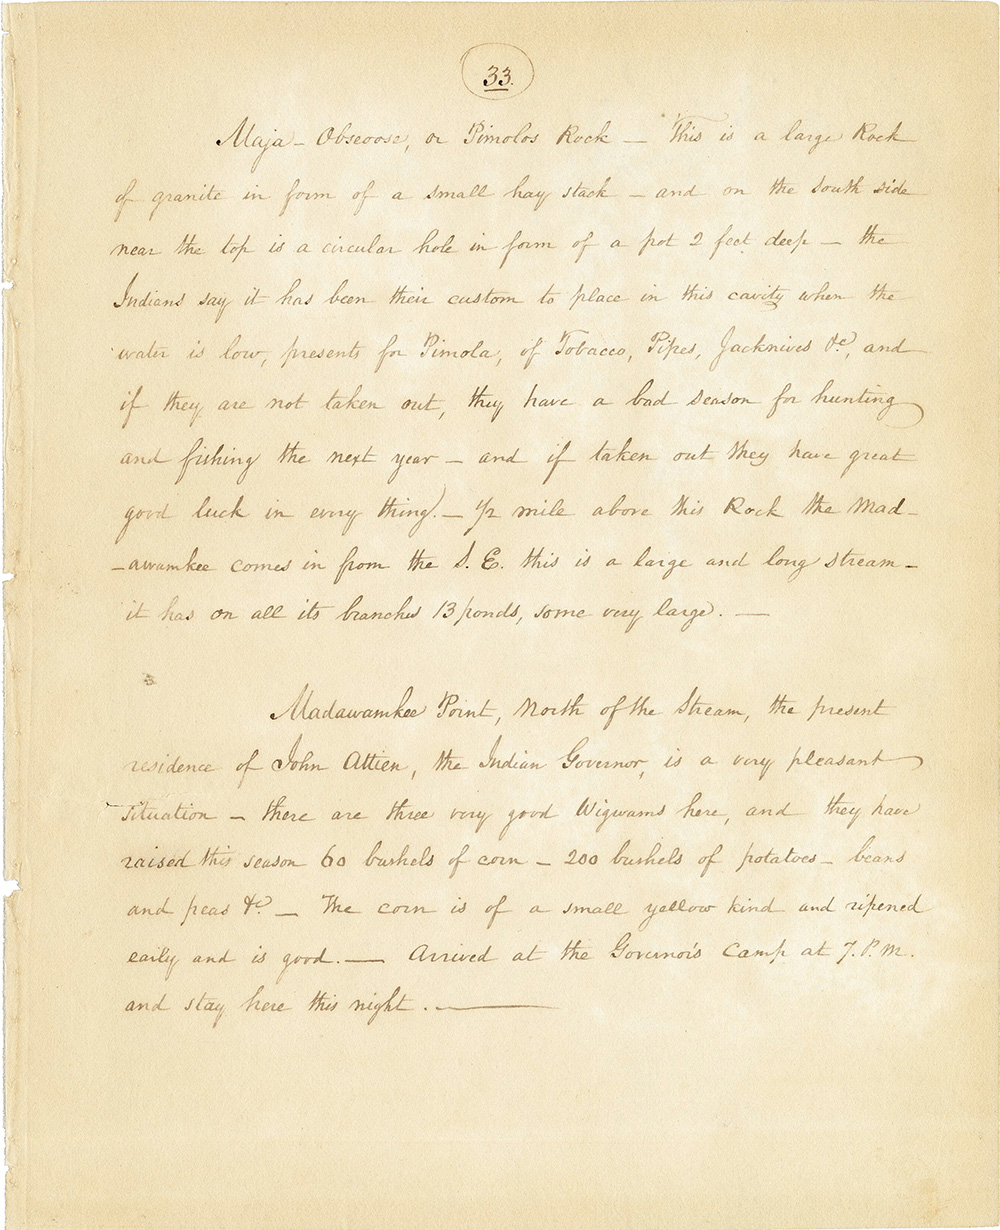 33.
Maja - Obseoose, or Pimolos Rock — This is a large Rock
of granite in form of a small hay stack — and on the South side
near the top is a circular hole in form of a pot 2 feet deep — the
Indians say it has been their custom to place in this cavity when the
water is low, presents for Pimola, of Tobacco, Pipes, Jacknives &c, and
if they are not taken out, they have a bad season for hunting
and fishing the next year — and if taken out they have great
good luck in every thing. — 1/2 mile above this Rock the Mad-
-awamkee comes in from the S. E. this is a large and long stream —
it has on all its branches 13 ponds, some very large. —
Madawamkee Point, North of the Stream, the present
residence of John Attien, the Indian Governor, is a very pleasant
situation — there are three very good Wigwams here, and they have
raised this season 60 bushels of corn — 200 bushels of potatoes — beans
and peas &c. — The corn is of a small yellow kind and ripened
early and is good. — Arrived at the Governor's Camp at 7. P. M.
and stay here this night. —